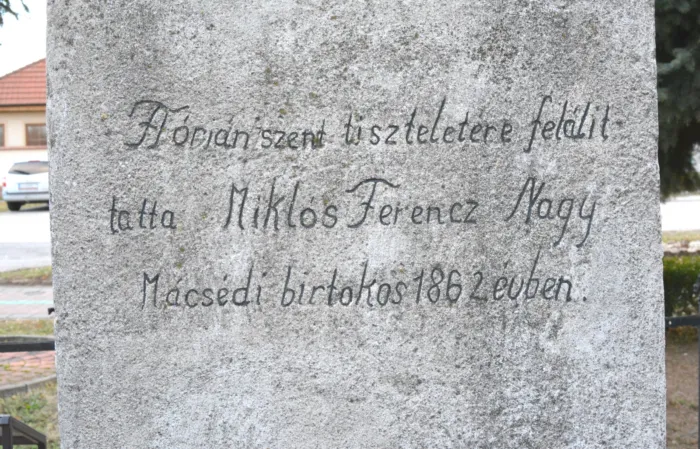 Flórián szent tiszteletére felálit-
tatta Miklós Ferencz Nagy
Mácsédi birtokos 1862 évben.